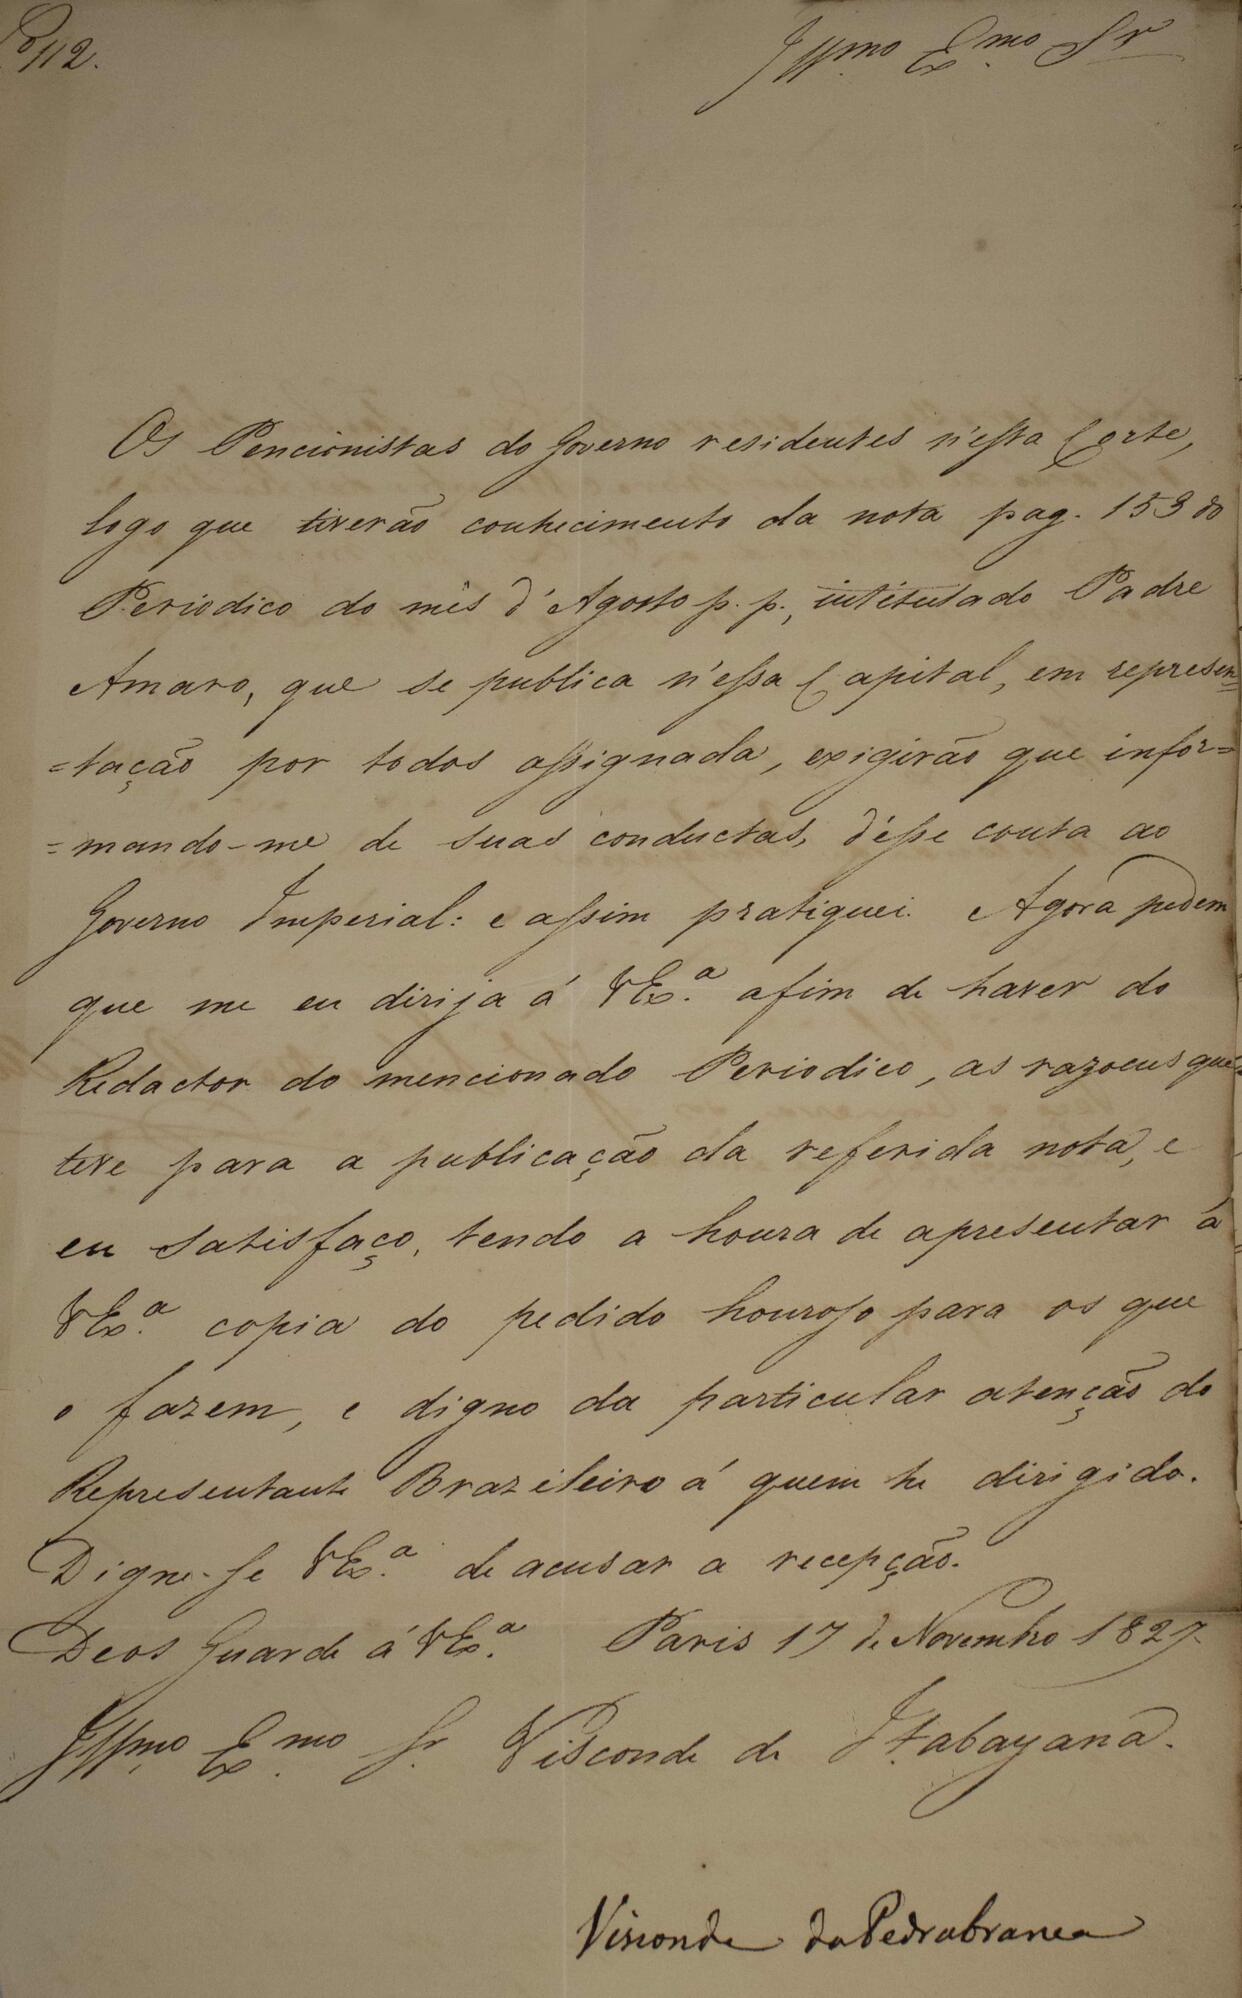 112.
Illmo Exmo Sr
Os Pencionistas do Governo residentes n'essa Corte,
logo que tiverão conhecimento da nota pag. 153 do
Periodico do mês d'Agosto p. p., intitulado Padre
Amaro, que se publica n'essa Capital, em represen=
=tação por todos assignada, exigirão que infor=
=mando-me de suas conductas, désse conta ao
Governo Imperial: e assim pratiquei. Agora pedem
que me eu dirija á VExa. afim de haver do
Redactor do mencionado Periodico, as razoens que
teve para a publicação da referida nota, e
eu satisfaço, tendo a honra de apresentar á
VExa. copia do pedido honroso para os que
o fazem, e digno da particular atenção do
Representante Brazileiro á quem he dirigido.
Digne-se VExa. de acusar a recepção.
Deos Guarde á VExa. Paris 17 de Novembro 1827.
Illmo. Exmo. Sr. Visconde de Itabayana.
Visconde da Pedrabranca